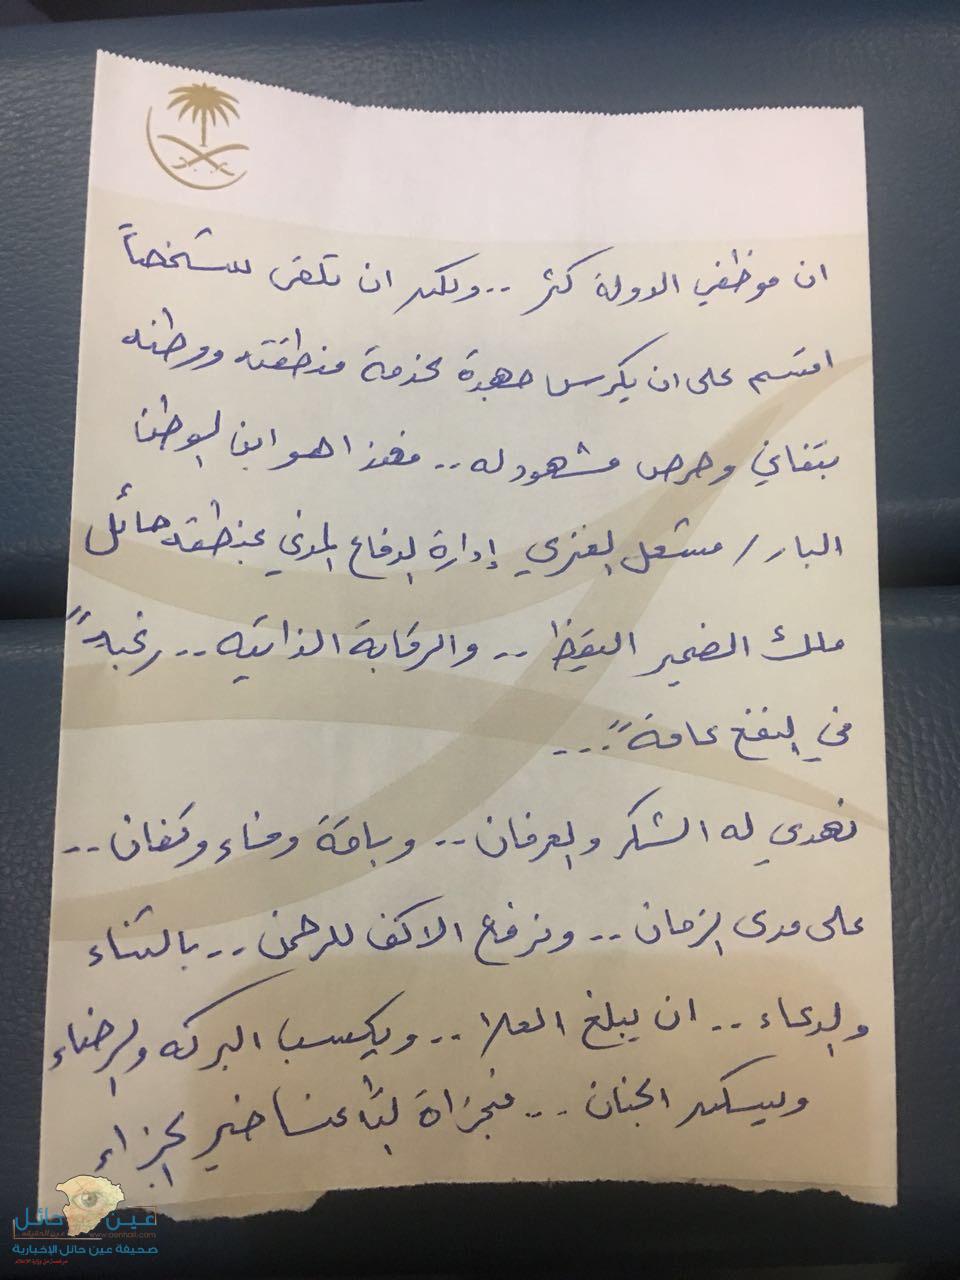 ان موظفي الدولة كثر .. ولكن ان تلقى شخصاً
اقسم على ان يكرس جهدة لخدمة منطقته ووطنه
بتفاني وحرص مشهود له .. فهذا هو ابن الوطن
البار / مشعل العنزي إدارة الدفاع المدني بمنطقه حائل
ملك الضمير اليقظ .. والرقابة الذاتيه .. رغبةً
في النفع عامةً ...
نهدي له الشكر والعرفان .. وباقة وفاء ..
على مدى الزمان .. ونرفع الاكف للرحمن .. بالثناء
والدعاء .. ان يبلغ العلا .. ويكسب البركه والرضاء
ويسكن الجنان .. فجزاة عنا خير الجزاء
عين حائل
www.aenhail.com
صحيفة عين حائل الإخبارية